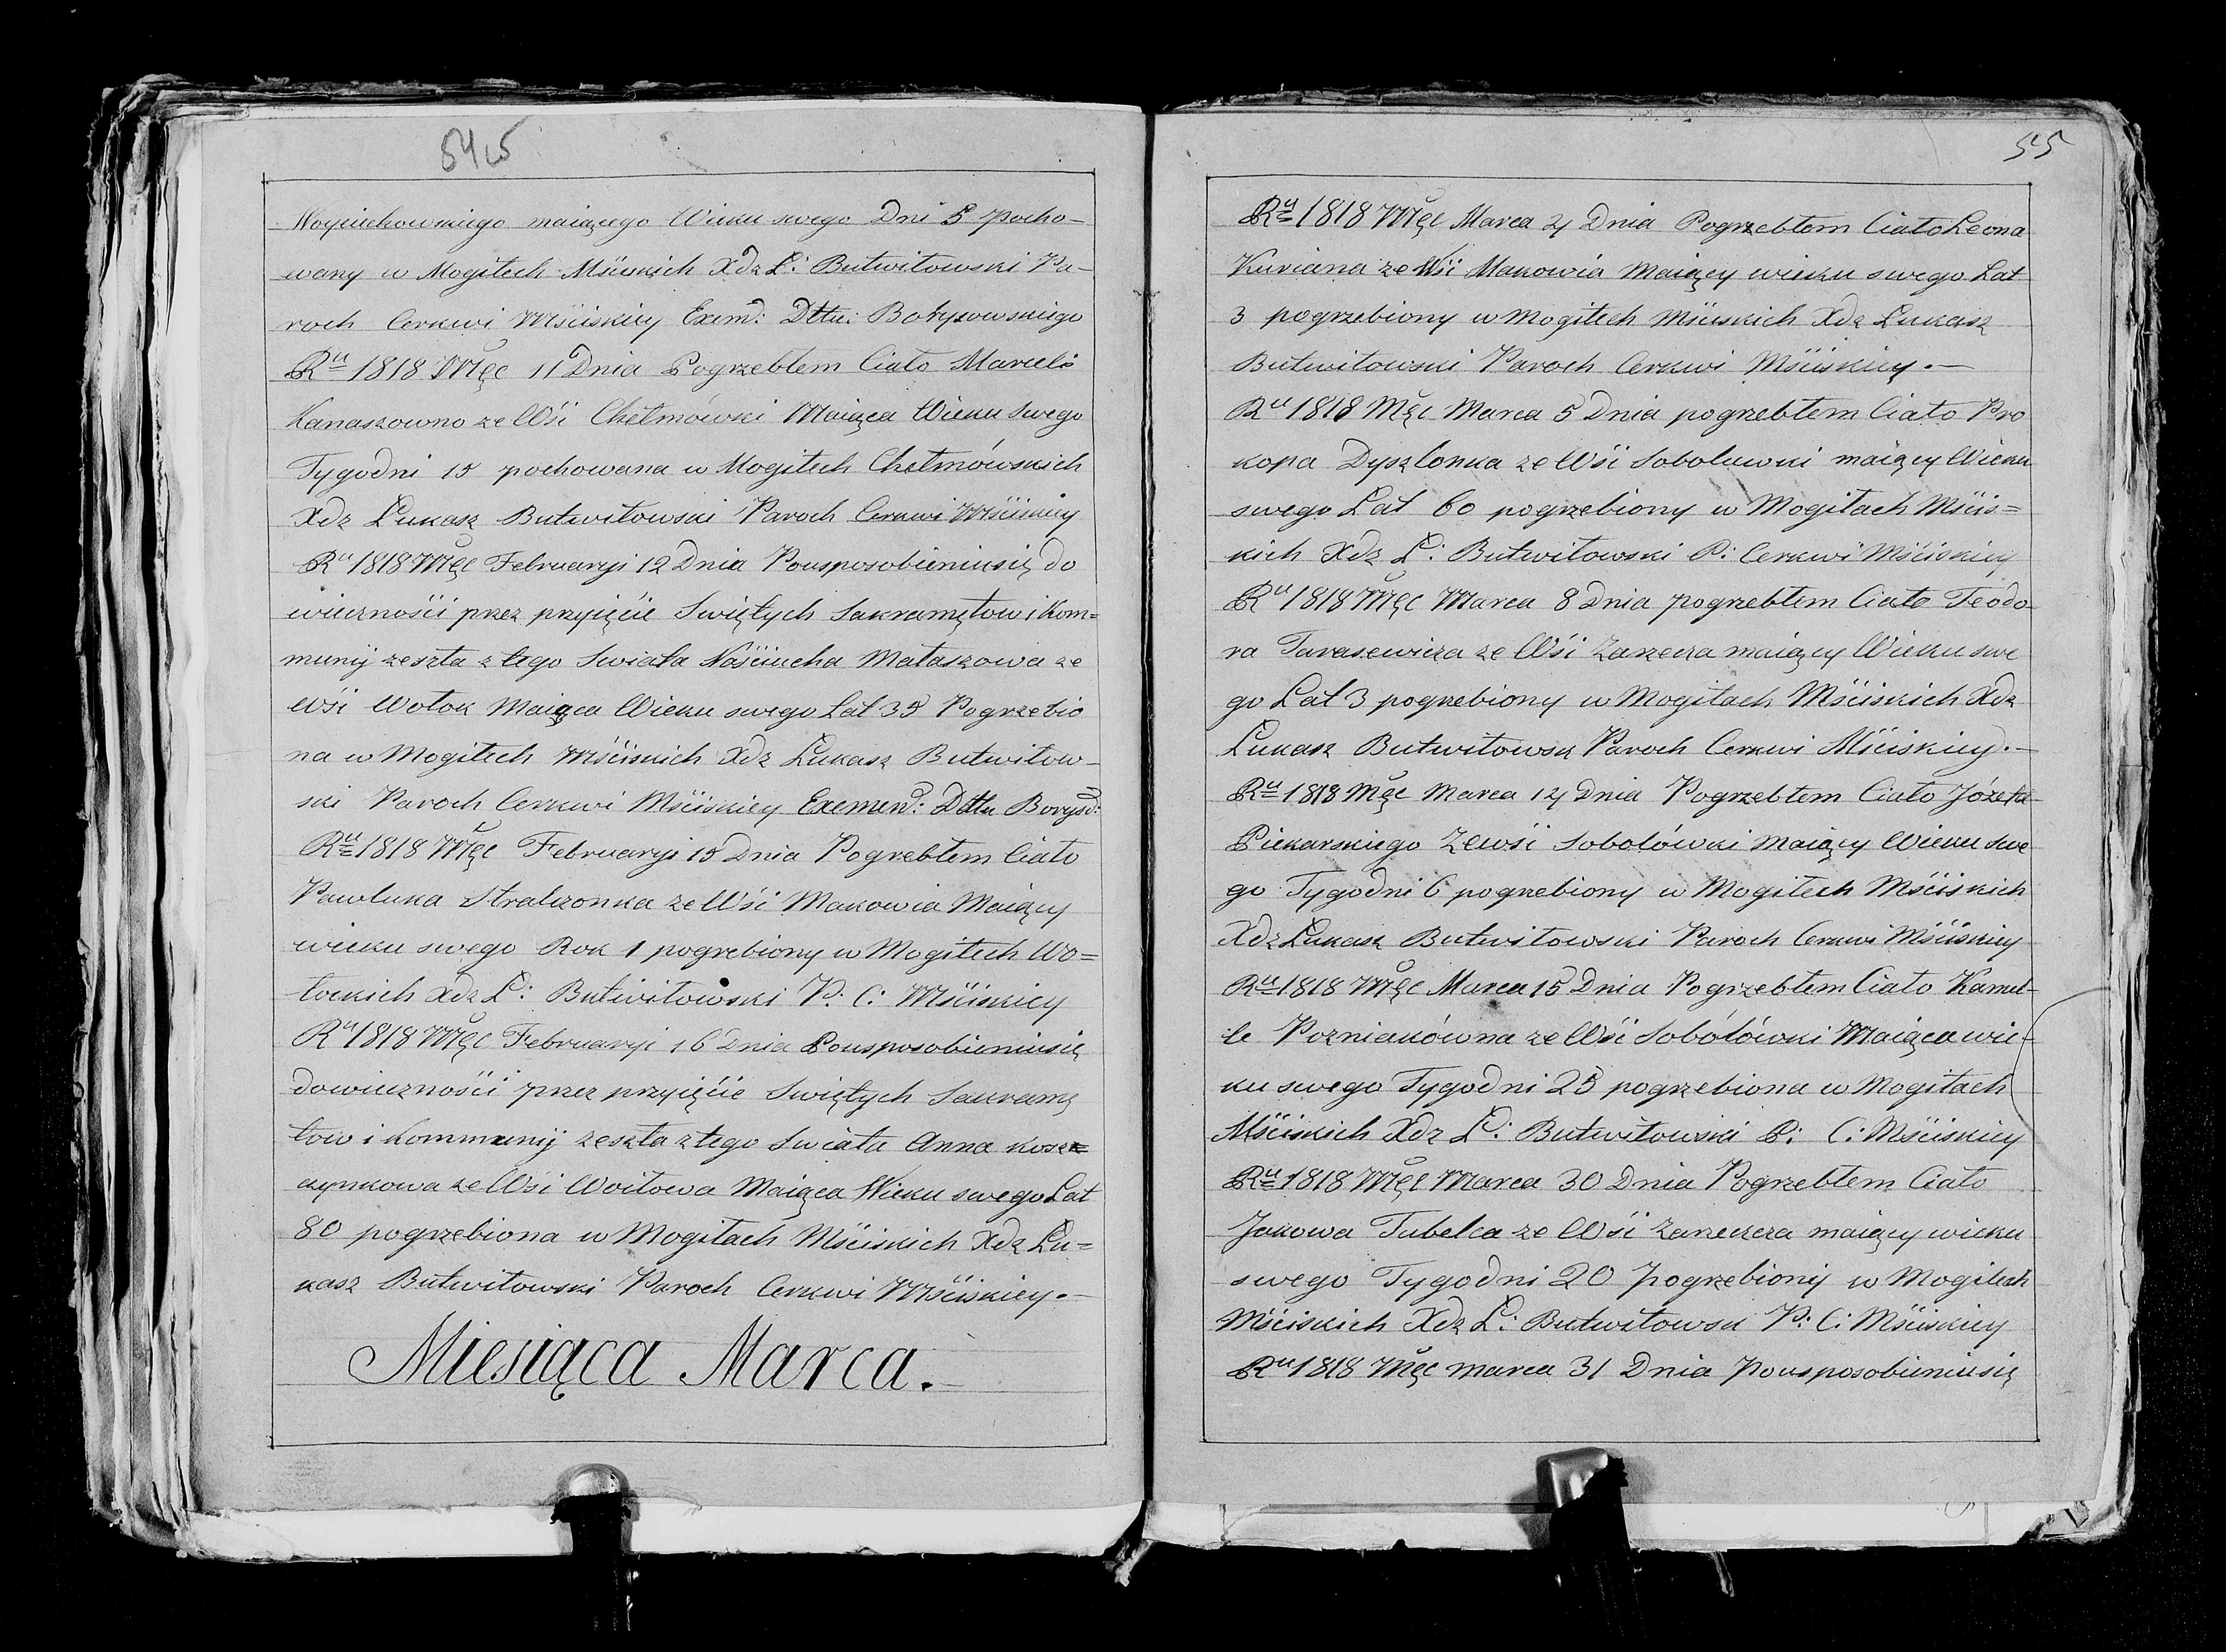 5415
Woyciechowskiego maiącego Wieku swego Dni 5 pocho-
wany w Mogiłech Mściskich Xdz Ł: Butwiłowski Pa-
roch Cerkwi Mściskiey Exemd: Dttu: Botysowskiego
Ru 1818 Męc 11 Dnia Pogrzebłem Ciało Marceli
Kanaszowno ze Wśi Chełmówki Maiąca Wieku Swego
Tygodni 15 pochowana w Mogiłech Chełmówskich
Xdz Łukasz Butwiłowski Paroch Cerkwi Mściskiey
Ru 1818 Męc Februaryi 12 Dnia Pousposobieniusię do
wiecznośći przez przyięćie Swiętych Sakramętow i Kom=
munij zeszła z tego Swiata Naśćiucha Mataszowa ze
Wśi Wołok Maiąca Wieku swego Lat 35 Pogrzebio
na w Mogiłech Mściskich Xdz Łukasz Butwiłow-
ski Paroch Cerkwi Mściskiey Exemend: Dttu Borysd:
Ru 1818 Męc Februaryi 15 Dnia Pogrebłem Ciało
Pawluka Stralczonka ze Wśi Makowia Maiący
wieku swego Rok 1 pogrebiony w Mogiłech Wo=
łockich Xdz Ł: Butwiłowski P: C: Mściskiey
Ru 1818 Męc Februaryi 16 Dnia Pousposobieniusię
dowiecznośći przez przyięćie Swiętych Sakramę
tow i Kommunij zeszła z tego Swiata Anna Kosz=
czynkowa ze Wśi Woitowa Maiąca Wieku swego Lat
80 pogrzebiona w Mogiłach Mściskich Xdz Łu=
kasz Butwiłowski Paroch Cerkwi Mściskiey.-
Miesiąca Marca.-
55
Ru 1818 Męc Marca 4 Dnia Pogrzebłem Ciało Leona
Kuriana ze Wśi Makowia Maiący wieku swego Lat
3 pogrzebiony w Mogiłech Mściskich Xdz Łukasz
Butwiłowski Paroch Cerkwi Mściskiey.-
Ru 1818 Męc Marca 5 Dnia pogrzebłem Ciało Pro
kopa Dyszlonka ze Wśi Soboluwki maiący Wieku
swego Lat 60 pogrzebiony w Mogiłach Mścis=
kich Xdz Ł: Butwiłowski P: Cerkwi Mściskiey
Ru 1818 Męc Marca 8 Dnia pogrzebłem Ciało Teodo
ra Tarasewicza ze Wśi Zarzecza maiący Wieku swe
go Lat 3 pogrzebiony w Mogiłach Mściskich Xdz
Łukasz Butwiłowsk Paroch Cerkwi Mściskiey.-
Ru 1818 Męc Marca 14 Dnia Pogrzebłem Ciało Józefa
Piekarskiego Zewśi Sobolówki Maiący Wieku swe
go Tygodni 6 pogrzebiony w Mogiłech Mściskich
Xdz Łukasz Butwiłowski Paroch Cerkwi Mściskiey
Ru 1818 Męc Marca 15 Dnia Pogrzebłem Ciało Kamel-
le Pozniakówna ze Wśi Sobólówki Maiąca wie-
ku swego Tygodni 25 pogrzebiona w Mogiłach
Mściskich Xdz Ł: Butwiłowski P: C: Mściskiey
Ru 1818 Męc Marca 30 Dnia Pogrzebłem Ciało
Jakowa Tubelca ze Wśi Zarzecza maiący wieku
swego Tygodni 20 pogrzebiony w Mogiłech
Mściskich Xdz Ł: Butwiłowsk P: C: Mściskiey
Ru 1818 Męc marca 31 Dnia Pousposobieniusię